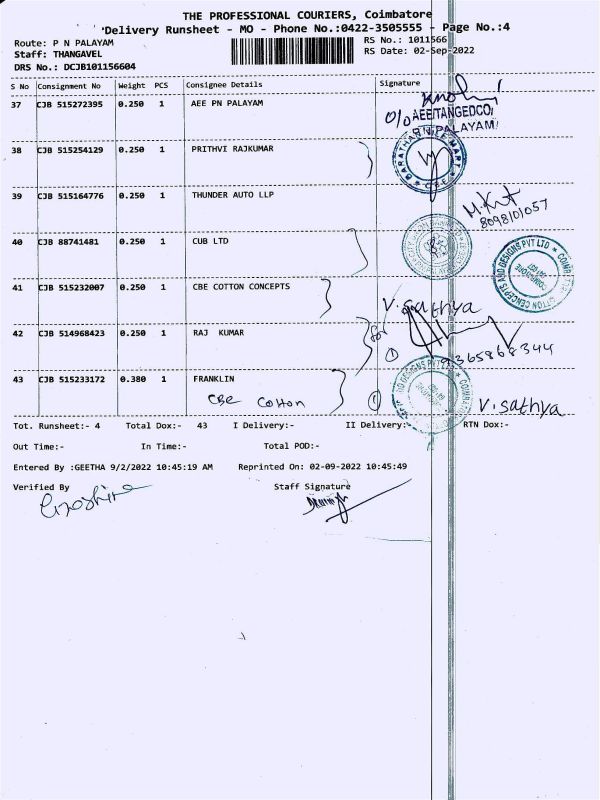 THE PROFESSIONAL COURIERS, Coimbatore
'Delivery Runsheet - MO - Phone No.:0422-3505555 - Page No.:4
Route: P N PALAYAM
RS No.: 1011566
Staff: THANGAVEL
RS Date: 02-Sep-2022
DRS No.: DCJB101156604
S No Consignment No Weight PCS Consignee Details Signature
37 CJB 515272395 0.250 1 AEE PN PALAYAM
O/o AEE/TANGEDCO/
PN PALAYAM
38 CJB 515254129 0.250 1 PRITHVI RAJKUMAR
39 CJB 515164776 0.250 1 THUNDER AUTO LLP
8098101057
40 CJB 88741481 0.250 1 CUB LTD
41 CJB 515232007 0.250 1 CBE COTTON CONCEPTS
V. Sathya
42 CJB 514968423 0.250 1 RAJ KUMAR
for
① 9365868344
43 CJB 515233172 0.380 1 FRANKLIN
CBE Cotton ①
V. Sathya
Tot. Runsheet:- 4 Total Dox:- 43 I Delivery:- II Delivery:- RTN Dox:-
Out Time:- In Time:- Total POD:-
Entered By :GEETHA 9/2/2022 10:45:19 AM Reprinted On: 02-09-2022 10:45:49
Verified By Staff Signature